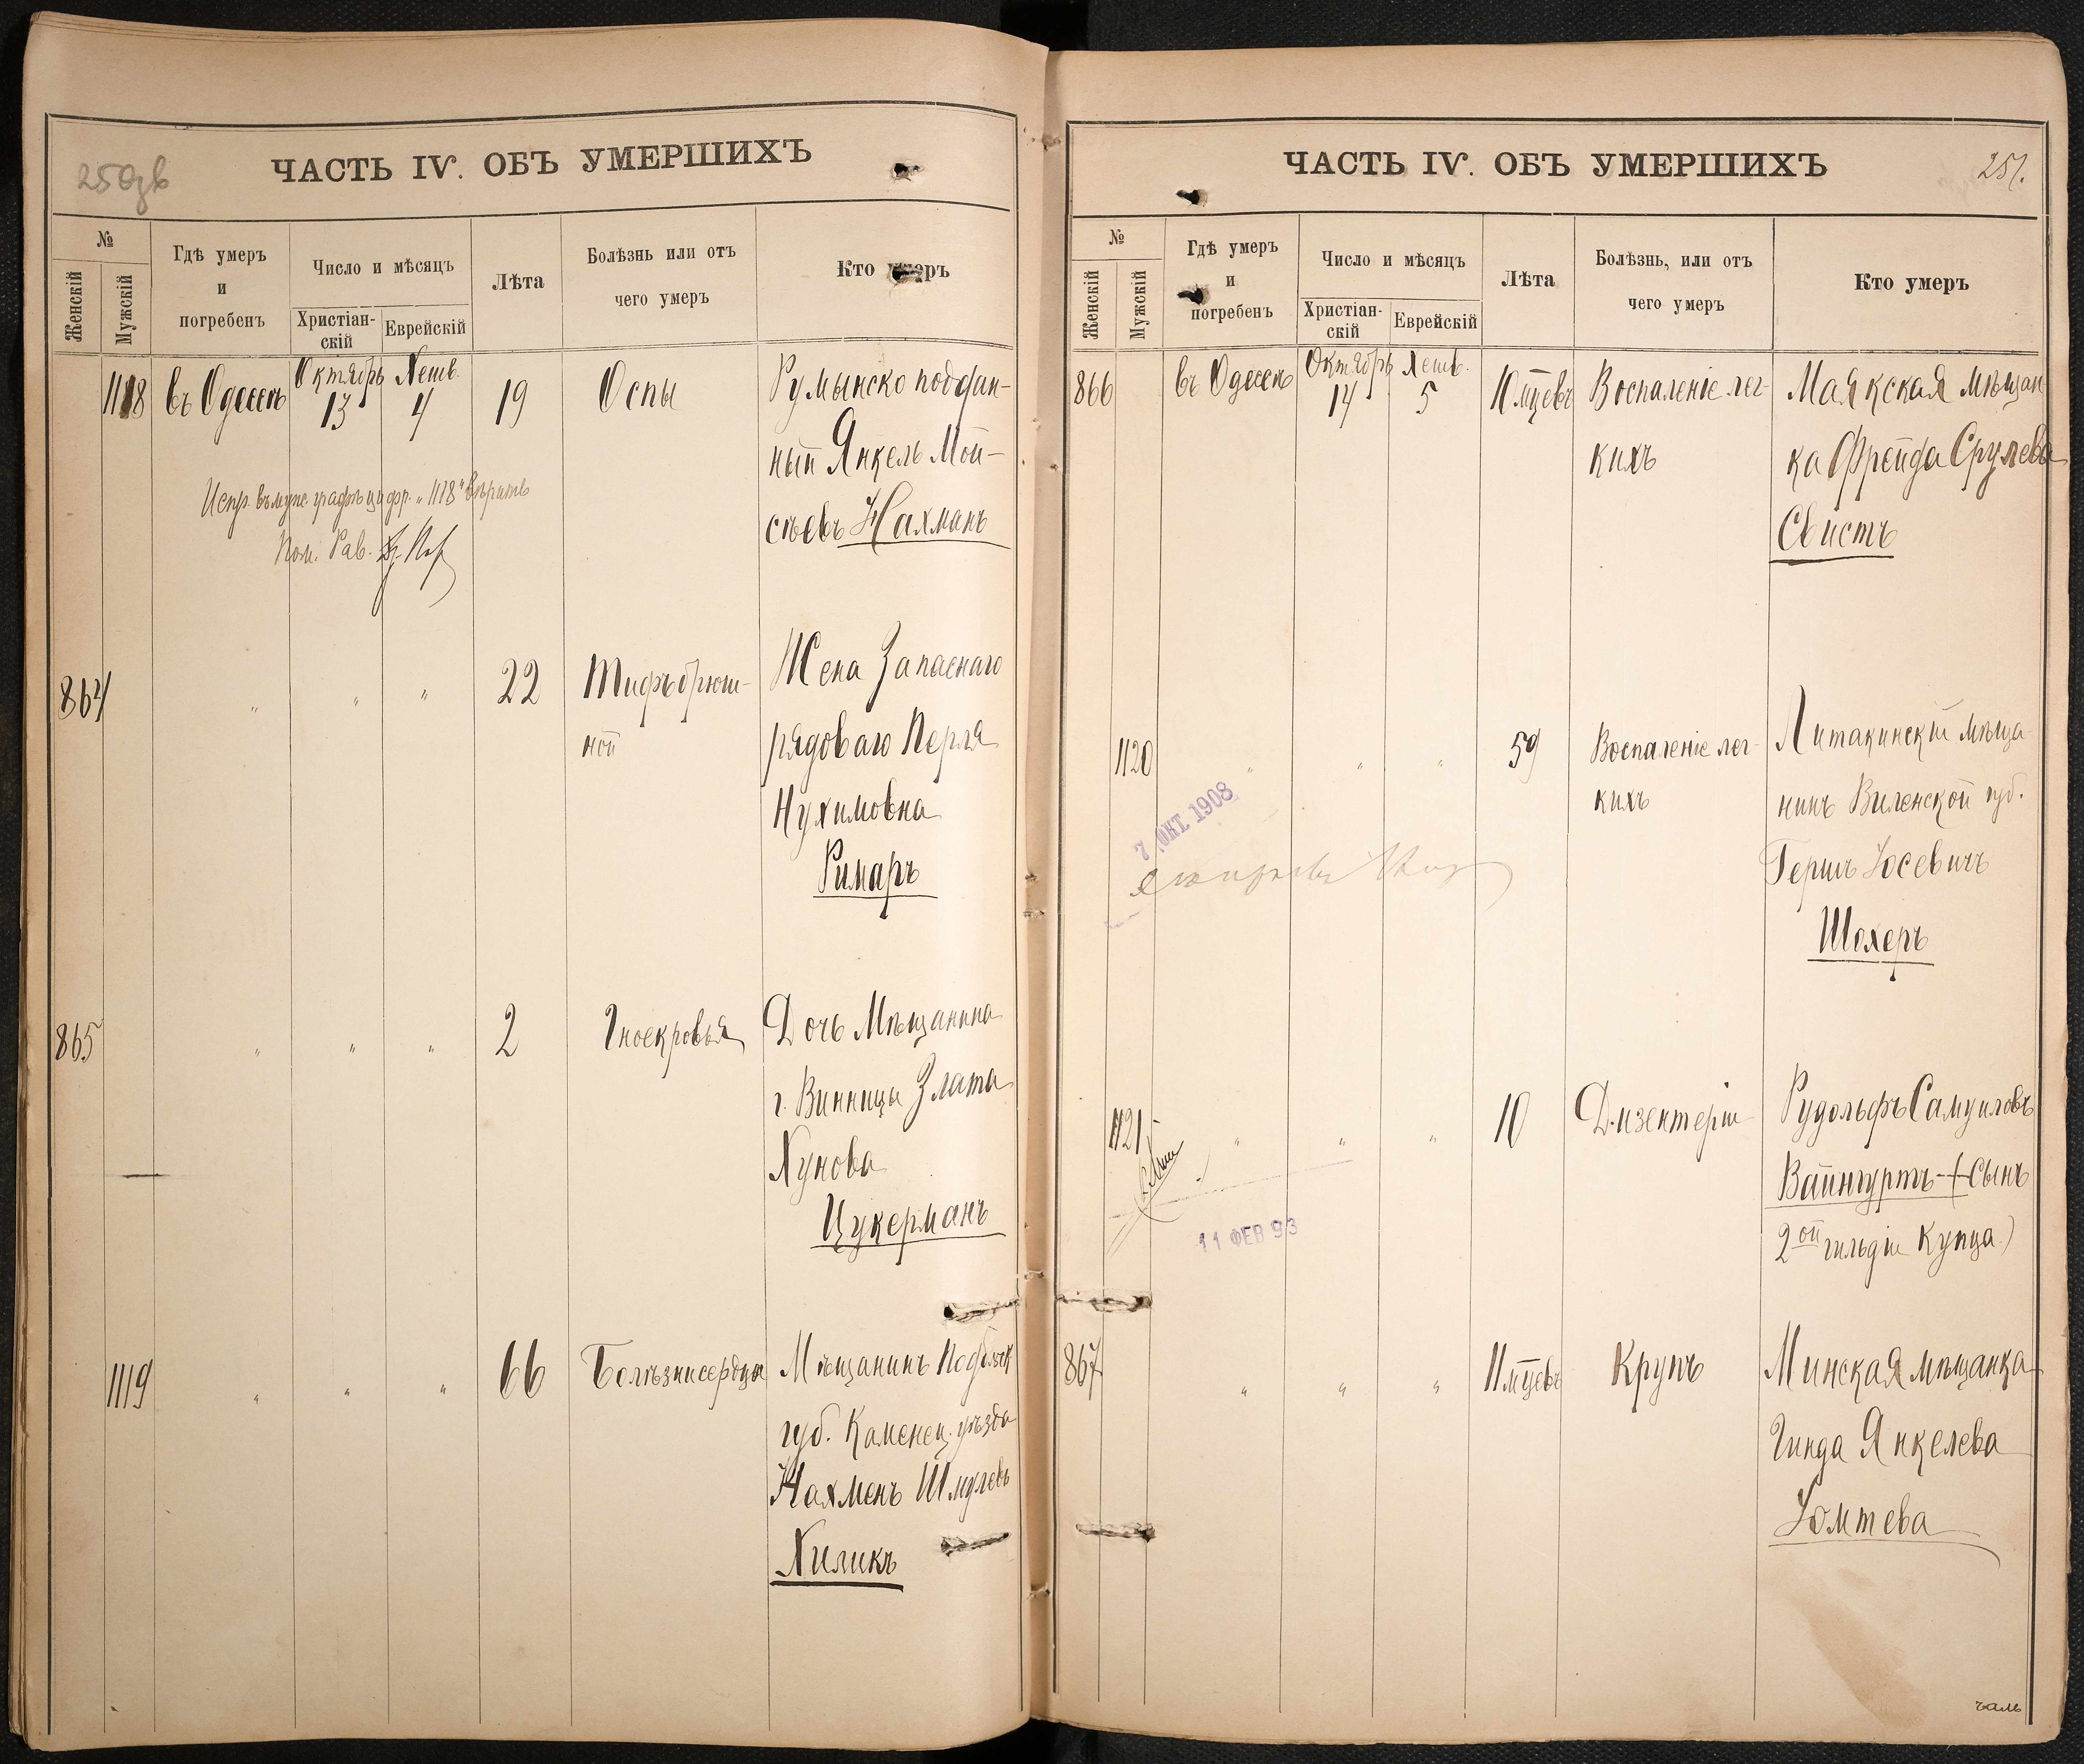 250 об
ЧАСТЬ IV. ОБЪ УМЕРШИХЪ
№
Женскій
Мужскій
Гдѣ умеръ
и
погребенъ
Число и мѣсяцъ
Христіан-
скій
Еврейскій
Лѣта
Болѣзнь или отъ
чего умеръ
Кто умеръ
1118 въ Одессѣ Октябрь 13 Хешв. 4 19 Оспы Румынско поддан-
ный Янкель Мой-
сѣевъ Нахманъ
Испр. въ муж. графѣ цифр. „1118" вѣрить
Пом. Рав.
864 " " " 22 Тифъ брюш- Жена Запаснаго
ной рядоваго Перля
Нухимовна
Римаръ
865 " " " 2 Гноекровья Дочь Мѣщанина
г. Винницы Злата
Хунова
Цукерманъ
1119 " " " 66 Болѣзни сердца Мѣщанинъ Подольск
губ. Каменец. уѣзда
Нахменъ Шмулевъ
Хиликъ
251.
ЧАСТЬ IV. ОБЪ УМЕРШИХЪ
№
Женскій
Мужскій
Гдѣ умеръ
и
погребенъ
Число и мѣсяцъ
Христіан-
скій
Еврейскій
Лѣта
Болѣзнь, или отъ
чего умеръ
Кто умеръ
866 въ Одессѣ Октябрь 14 Хешв. 5 10 мцевъ Воспаленіе лег- Маякская мѣщан
кихъ ка Фрейда Срулева
Свистъ
1120 " " " 59 Воспаленіе лег- Литакинскій мѣща
кихъ нинъ Виленской губ.
7 ОКТ. 1908
Гершъ Іосевичъ
Шохеръ
1121 " " " 10 Дизентеріи Рудольфъ Самуиловъ
Вайнгуртъ-(сынъ
11 ФЕВ 93
2ой гильдіи Купца)
867 " " " 11 мцевъ Крупъ Минская мѣщанка
Гинда Янкелева
Іомтева